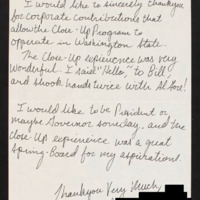 I would like to sincerely thankyou
for corporate contributions that
allow the Close-Up Program to
opperate in Washington State.
The Close-Up experience was very
Wonderful. I said "Hello," to Bill C
and shook hands twice with Al Gore!
I would like to be President or
maybe Governor someday, and the
Close-Up experience was a great
Spring-Board for my aspirations.
Thankyou Very Much,